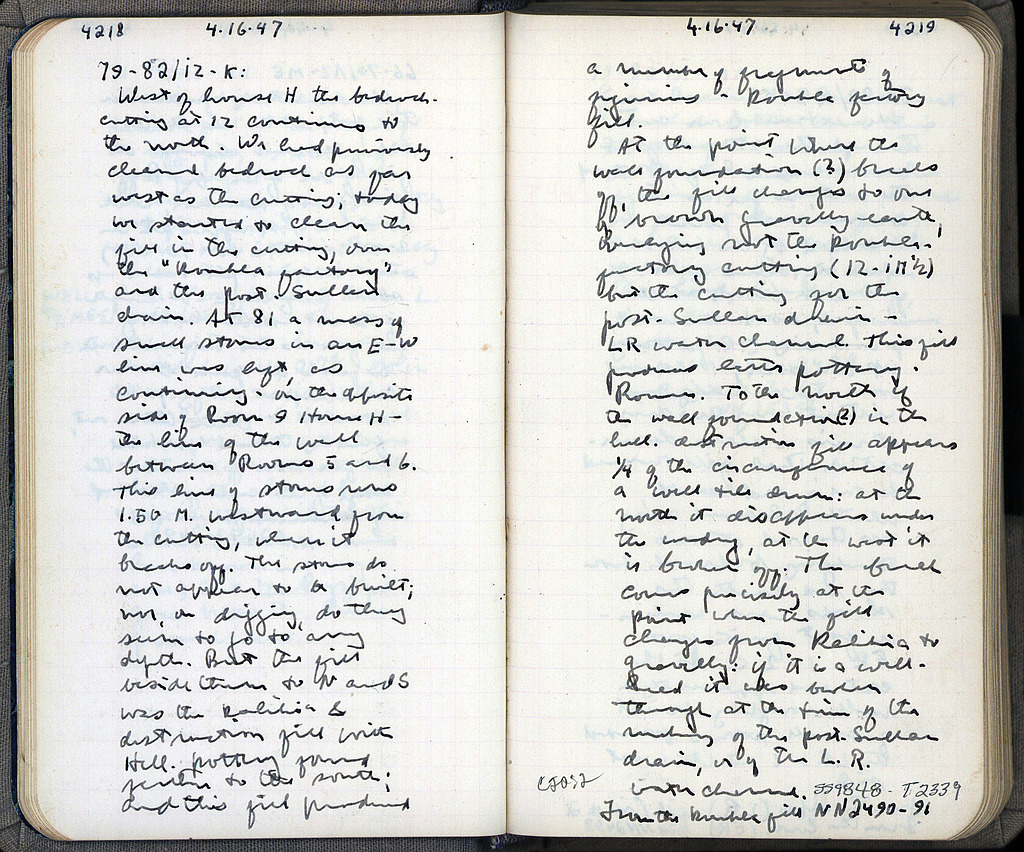 4218 4.16.47
79-82/12-K:
West of house H the bedrock-
cutting at 12 continues to
the north. We had previously
cleaned bedrock as far
west as the cutting; today
we started to clean the
fill in the cutting, over
the "Koukla factory"
and the post-Sullan
drain. At 81 a mass of
small stones in an E-W
line was left, as
continuing - on the opposite
side of Room 9 House H -
the line of the wall
between Rooms 5 and 6.
This line of stones runs
1.50 M. westward from
the cutting, where it
breaks off. The stones do
not appear to be built;
nor, on digging, do they
seem to go to any
depth. But the fill
beside them to N and S
was the kalitia &
destruction fill with
Hell. pottery found
further to the south;
and this fill produced
4.16.47 4219
a number of fragments of
figurines - Koukla factory
fill.
At the point where the
wall foundation (?) breaks
off, the fill changes to one
of brown gravelly earth,
overlying not the Koukla-
factory cutting (12-
but the cutting for the
post-Sullan drain -
LR water channel. This fill
produces later pottery -
Roman. To the north of
the wall foundation (?) in the
hell. destruction fill appears
1/4 of the circumference of
a well tile drum: at the
north it disappears under
the undug, at the west it
is broken off. The break
comes precisely at the
point where the fill
changes from kalitia to
gravelly: if it is a well-
head it was broken
through at the time of the
making of the post-Sullan
drain, or of the L. R.
water channel. SS9848 - T2339
From the Koukla fill NN2490-91